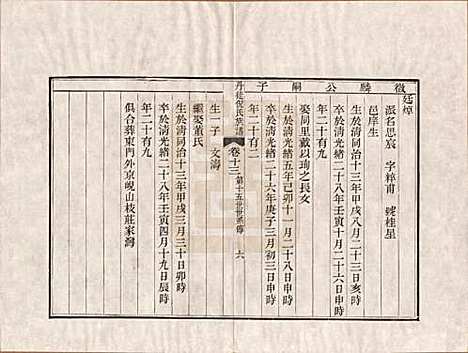 徵麟公嗣子
廷焯
派名恩宸 字粹甫 號桂星
邑庠生
生於清同治十三年甲戌八月二十三日亥時
卒於清光緒二十八年壬寅十月二十六日申時
年二十有九
娶同里戴以琦之長女
生於清光緒五年己卯十一月二十八日申時
卒於清光緒二十六年庚子三月初三日申時
年二十有二
丹徒倪氏族譜 卷十三 第十五世世系傳 六
生一子 文濤
繼娶董氏
生於清同治十三年甲戌三月三十日卯時
卒於清光緒二十八年壬寅四月十九日辰時
年二十有九
俱合葬東門外京峴山枝莊家灣